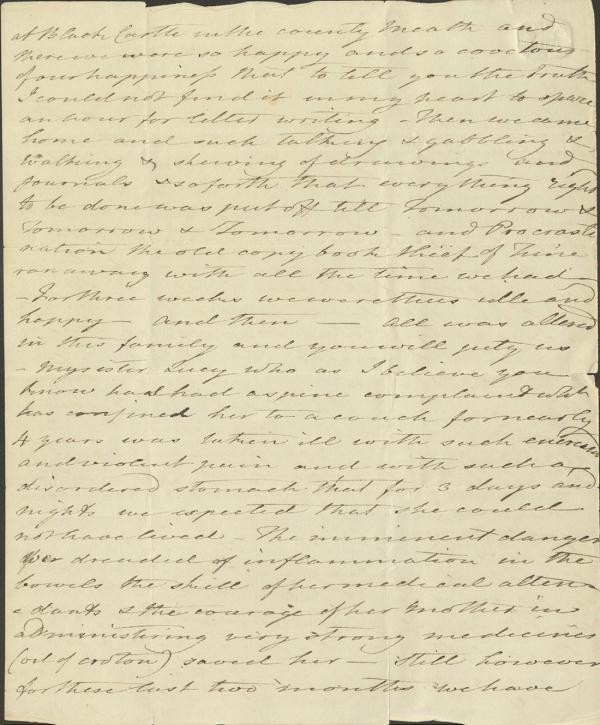 at Black Castle in the county Meath and
there we were so happy and so covetous
of our happiness that to tell you the truth
I could not find it in my heart to spare
an hour for letter writing - Then we came
home and such talking & gabbling &
walking & shewing of drawings and
journals & so forth that everything right
to be done was put off till Tomorrow &
Tomorrow & Tomorrow - and Procrasti
nation the old copy book thief of Time
ran away with all the time we had -
- For three weeks we were thus idle and
happy - and then — all was altered
in this family and you will pity us
- My sister Lucy who as I believe you
know had had a spine complaint which
has confined her to a couch for nearly
4 years was taken ill with such
and violent pain and with such a
disordered stomach that for 3 days and
nights we expected that she could
not have lived - The imminent danger
dreaded of inflammation in the
bowels the skill of her medical atten
dants & the courage of her Mother in
administering very strong medicines
(oil of croton) saved her — Still however
for these last two months we have